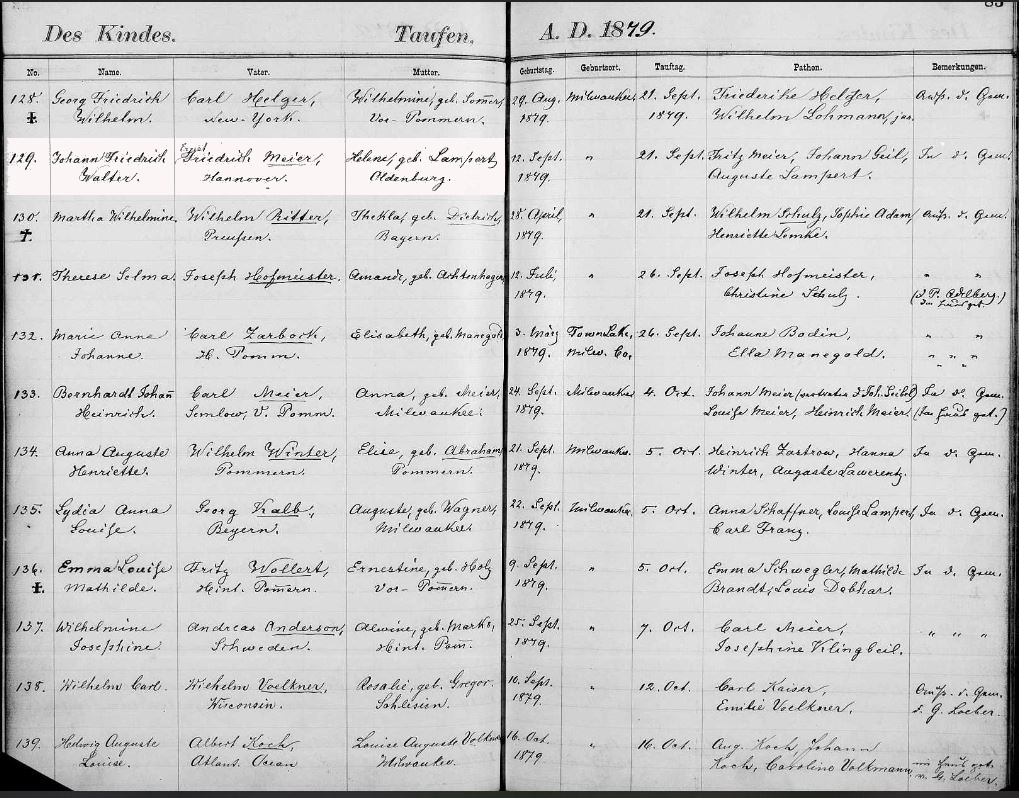 85
Des Kindes. Taufen, A. D. 1879.
No. Name. Vater. Mutter. Geburtstag. Geburtsort. Tauftag. Pathen. Bemerkungen.
128. Georg Friedrich Carl Helger, Wilhelmine, geb. Somer, 29. Aug. Milwaukee, 21. Sept. Friederike Helger, d. Gem.
Wilhelm. New-York. Vor-Pommern. 1879. 1879. Wilhelm Lohmann, jun.
129. Johann Friedrich Ernst Friedrich Meier, Helene, geb. Lampert, 12. Sept. " 21. Sept. Fritz Meier, Johann Geil, In d. Gem.
Walter. Hannover. Oldenburg. 1879. Auguste Lampert.
130. Martha Wilhelmine. Wilhelm Ritter, Thekla, geb. Dietrich, 28. April, " 21. Sept. Wilhelm Schulz, Sophie Adam, d. Gem.
Preußen. Bayern. 1879. Henriette Lemke.
131. Therese Selma. Joseph Hofmeister. Amande, geb. Achtenhagen, 12. Juli, " 26. Sept. Joseph Hofmeister, " "
1879. Christine Schulz. (d. P. Adelberg.)
132. Marie Anna Carl Zarbock, Elisabeth, geb. Manegold, 3. März Town Lake, 26. Sept. Johanne Bodin, " "
Johanne. H. Pomm. 1879. Milw. Co. Ella Manegold. " " "
133. Bernhardt Johañ Carl Meier, Anna, geb. Meier, 24. Sept. Milwaukee 4. Oct. Johann Meier, (vertreten d. Joh. Seibel) In d. Gem.
Heinrich. Semlow, V. Pomm. Milwaukee. 1879. Louise Meier, Heinrich Meier. (Im Haus get.)
134. Anna Auguste Wilhelm Winter, Elise, geb. Abraham, 21. Sept. Milwauke. 5. Oct. Heinrich Zastrow, Hanna In d. Gem.
Henriette. Pommern. Pommern. 1879. Winter, Auguste Lawerenz.
135. Lydia Anna Georg Kalb, Auguste, geb. Wagner, 22. Sept. Milwaukee, 5. Oct. Anna Schaffner, Louise Lampert, In d. Gem.
Louise. Beyern. Milwaukee. 1879. Carl Franz.
136. Emma Louise Fritz Wollert, Ernestine, geb. Holz 9. Sept. " 5. Oct. Emma Schwegler, Mathilde In d. Gem.
Mathilde. Hint. Pom̃ern. Vor-Pom̃ern. 1879. Brandt, Louis Debhar.
137. Wilhelmine Andreas Anderson, Alwine, geb. Marks, 25. Sept. " 7. Oct. Carl Meier, " " "
Josephine. Schweden. Hint. Pom̃. 1879. Josephine Klingbeil.
138. Wilhelm Carl. Wilhelm Voelkner, Rosalie, geb. Gregor. 10. Sept. " 12. Oct. Carl Kaiser, d. Gem.
Wisconsin. Schlesien. 1879. Emilie Voelkner. d. G. Loeber.
139. Hedwig Auguste Albert Koch, Louise Auguste Volkm 16. Oct. " 16. Oct. Aug. Koch, Johann
Louise. Atlant. Ocean Milwaukee. 1879. Koch, Caroline Volkmann, im Haus get.
v. G. Loeber.